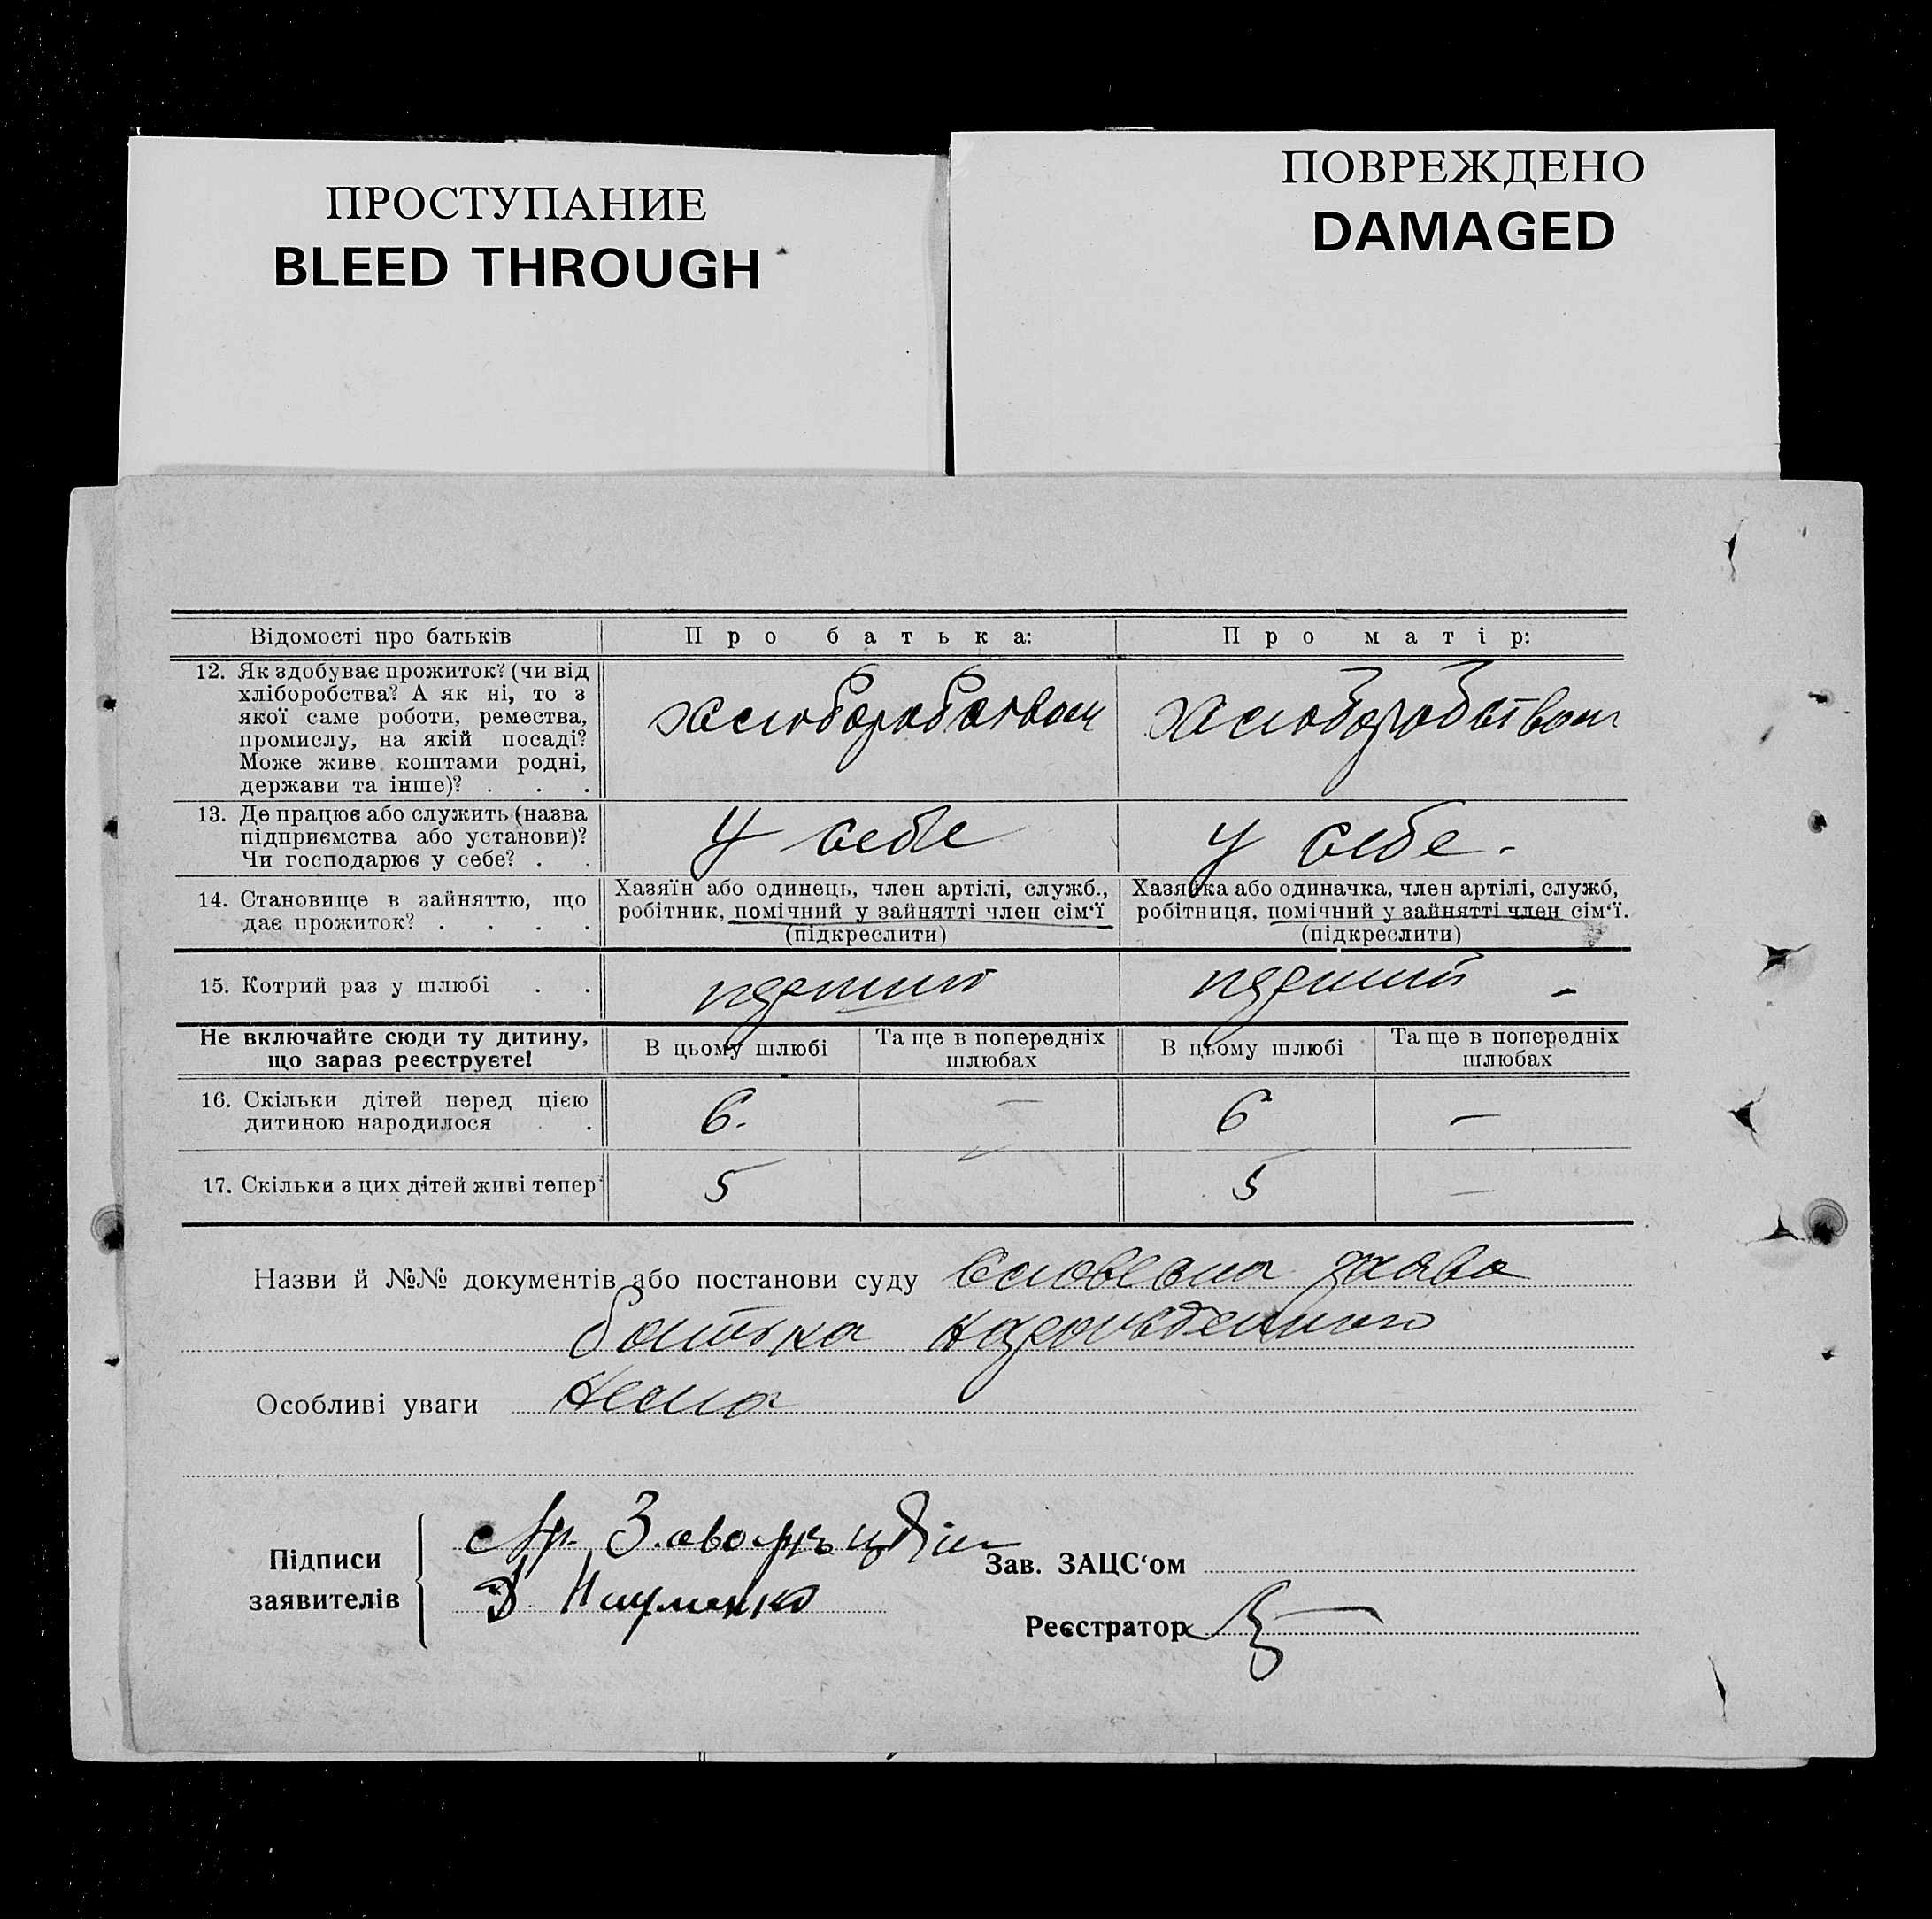 ПРОСТУПАНИЕ
BLEED THROUGH
ПОВРЕЖДЕНО
DAMAGED
Відомості про батьків
Про батька:
Про матір:
12. Як здобуває прожиток? (чи від
хліборобства? А як ні, то з
якої саме роботи, ремества,
промислу, на якій посаді?
Може живе коштами родні,
держави та інше)? . . .
хлиборобством
хлиборобством
13. Де працює або служить (назва
підприємства або установи)?
Чи господарює у себе? . .
У себе
у себе.
14. Становище в зайняттю, що
дає прожиток? . . . .
Хазяїн або одинець, член артілі, служб.,
робітник, помічний у зайнятті член сім‘ї
(підкреслити)
Хазяйка або одиначка, член артілі, служб,
робітниця, помічний у зайнятті член сім‘ї.
(підкреслити)
15. Котрий раз у шлюбі . .
перший
перший –
Не включайте сюди ту дитину,
що зараз реєструєте!
В цьому шлюбі
Та ще в попередніх
шлюбах
В цьому шлюбі
Та ще в попередніх
шлюбах
16. Скільки дітей перед цією
дитиною народилося . .
6.
—
6
—
17. Скільки з цих дітей живі тепер
5
5
—
Назви й №№ документів або постанови суду Словесна заява
батька
Особливі уваги Нема
Підписи
заявителів
Науменко
Зав. ЗАЦС‘ом
Реєстратор